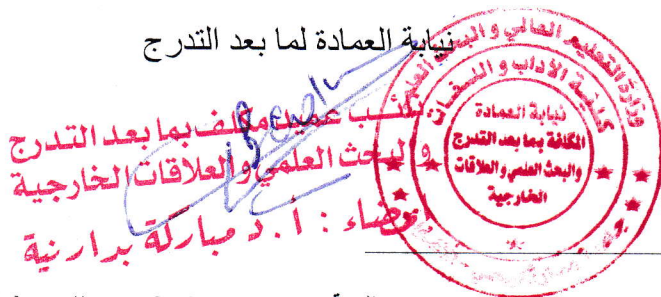 نيابة العمادة لما بعد التدرج
نائب عميد مكلف بما بعد التدرج
والبحث العلمي والعلاقات الخارجية
إمضاء : أ.د مباركة بدارنية
وزارة التعليم العالي و البحث العلمي
كلية الآداب و اللغات
نيابة العمادة
المكلفة بما بعد التدرج
والبحث العلمي والعلاقات
الخارجية